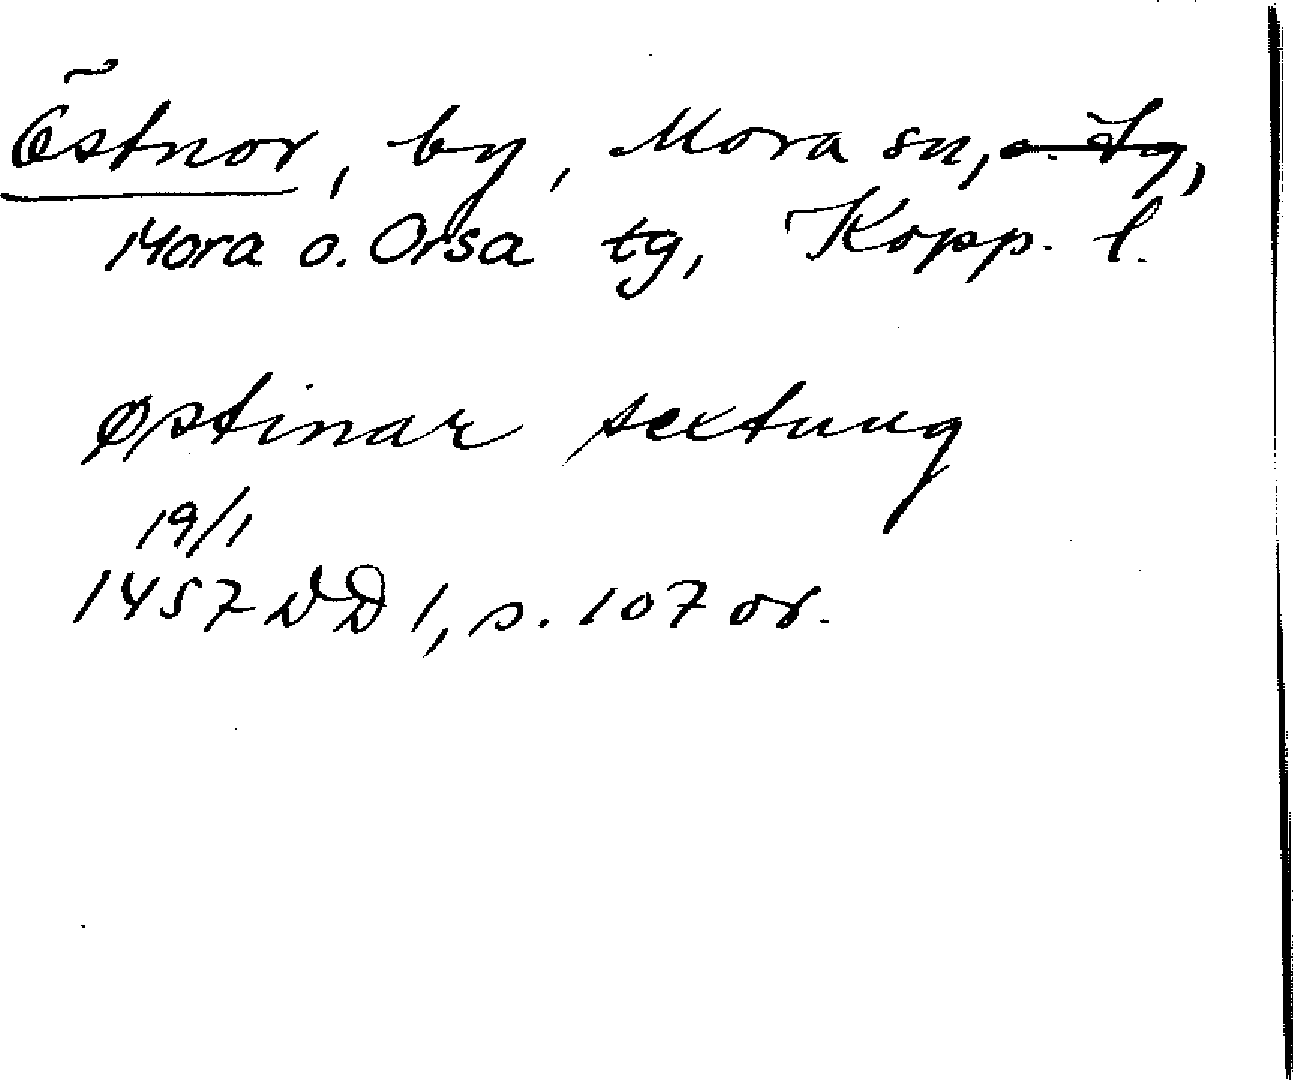 Östnor, by, Mora sn, o. Tg,
Mora o. Orsa tg, Kopp. l.
Østinar sextung
19/1
1457 DD 1, s. 107 or.